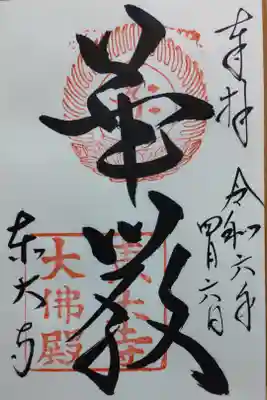 奉拝
令和六年
四月六日
華嚴
東大寺
東大寺
大佛殿